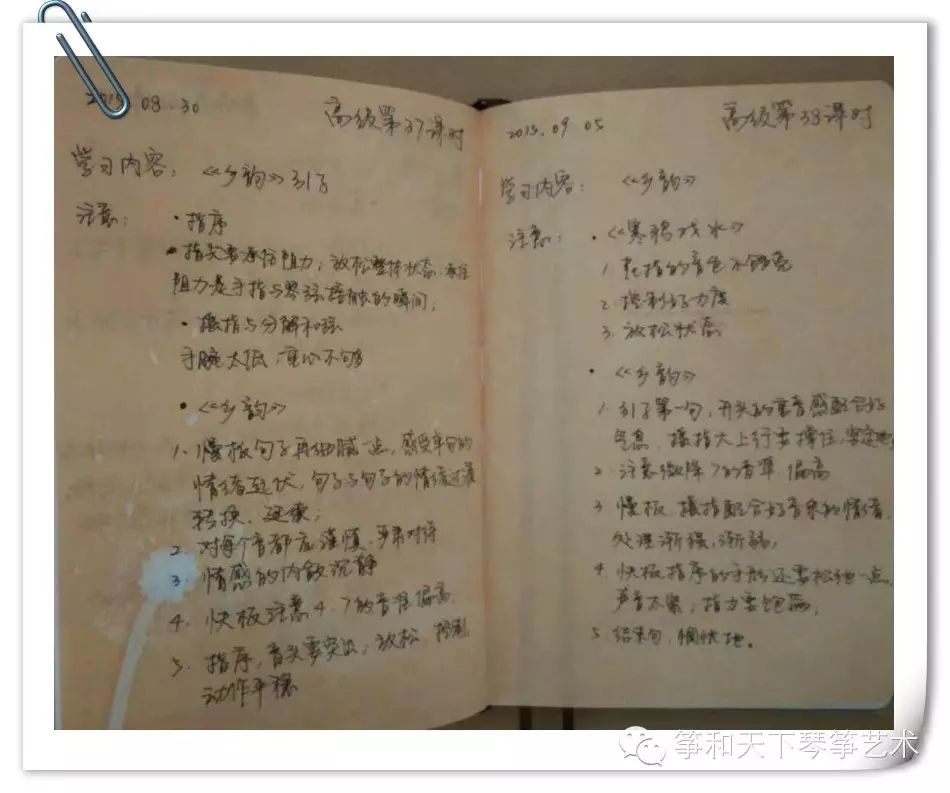 2015.08.30
高级第37课时
学习内容：《乡韵》引子
注意：• 指序
• 指尖要承住阻力，放松整体状态，承住
阻力是手指与琴弦接触的瞬间；
• 摇指与分解和弦
手腕太低，重心不够
• 《乡韵》
1. 慢板句子再细腻一点，感受单句的
情绪延伏，句子与句子的情绪过渡
转换、延续；
2. 对每个音都应谨慎、严肃对待
3. 情感的内敛沉静
4. 快板注意4、7的音准偏高
5. 指序，音头要突出，放松、控制
动作平稳
2015.09.05
高级第38课时
学习内容：《乡韵》
注意：• 《寒鸦戏水》
1. 花指的音色不饱满
2. 控制好力度
3. 放松状态
• 《乡韵》
1. 引子第一句，开头的重音感配合好
气息，摇指大上行要撑住，坚定地
2. 注意微降7的音准偏高
3. 慢板，摇指配合好音乐的情绪，
处理渐强，渐弱；
4. 快板指序的手形还要松弛一点
声音太紧，指力要饱满；
5. 结束句，愉快地。
筝和天下琴筝艺术